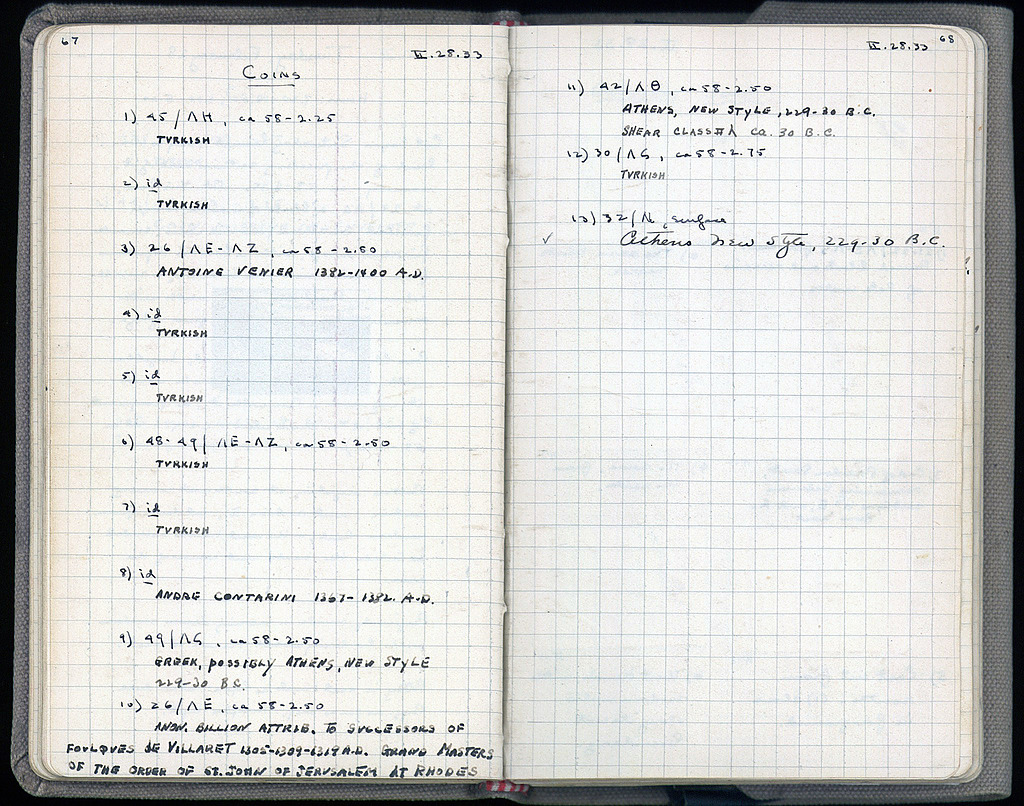 67
II.28.33
COINS
1) 45/ΛΗ, ca 58-2.25
TVRKISH
2) id
TVRKISH
3) 26/ΛΕ-ΛΖ, ca 58-2.50
ANTOINE VENIER 1382-1400 A.D.
4) id
TVRKISH
5) id
TVRKISH
6) 48-49/ΛΕ-ΛΖ, ca 58-2.50
TVRKISH
7) id
TVRKISH
8) id
ANDRE CONTARINI 1367-1382. A.D.
9) 49/ΛϚ, ca 58-2.50
GREEK, POSSIBLY ATHENS, NEW STYLE
229-30 B.C.
10) 26/ΛΕ, ca 58-2.50
ANON. BILLION ATTRIB. TO SUCCESSORS OF
FOULQVES DE VILLARET 1305-1309-1319 A.D. GRAND MASTERS
OF THE ORDER OF ST. JOHN OF JERVSALEM AT RHODES
68
II.28.33
11) 42/ΛΘ, ca 58-2.50
ATHENS, NEW STYLE, 229-30 B.C.
SHEAR CLASS # λ CA. 30 B.C.
12) 30/ΛϚ, ca 58-2.75
TVRKISH
13) 32/ , surface
✓ Athens New Style, 229-30 B.C.